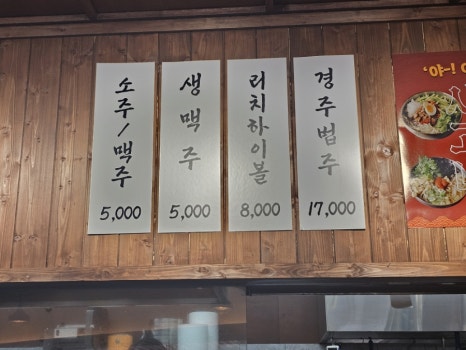 소주/맥주
5,000
생맥주
5,000
리치하이볼
8,000
경주법주
17,000
'야~!